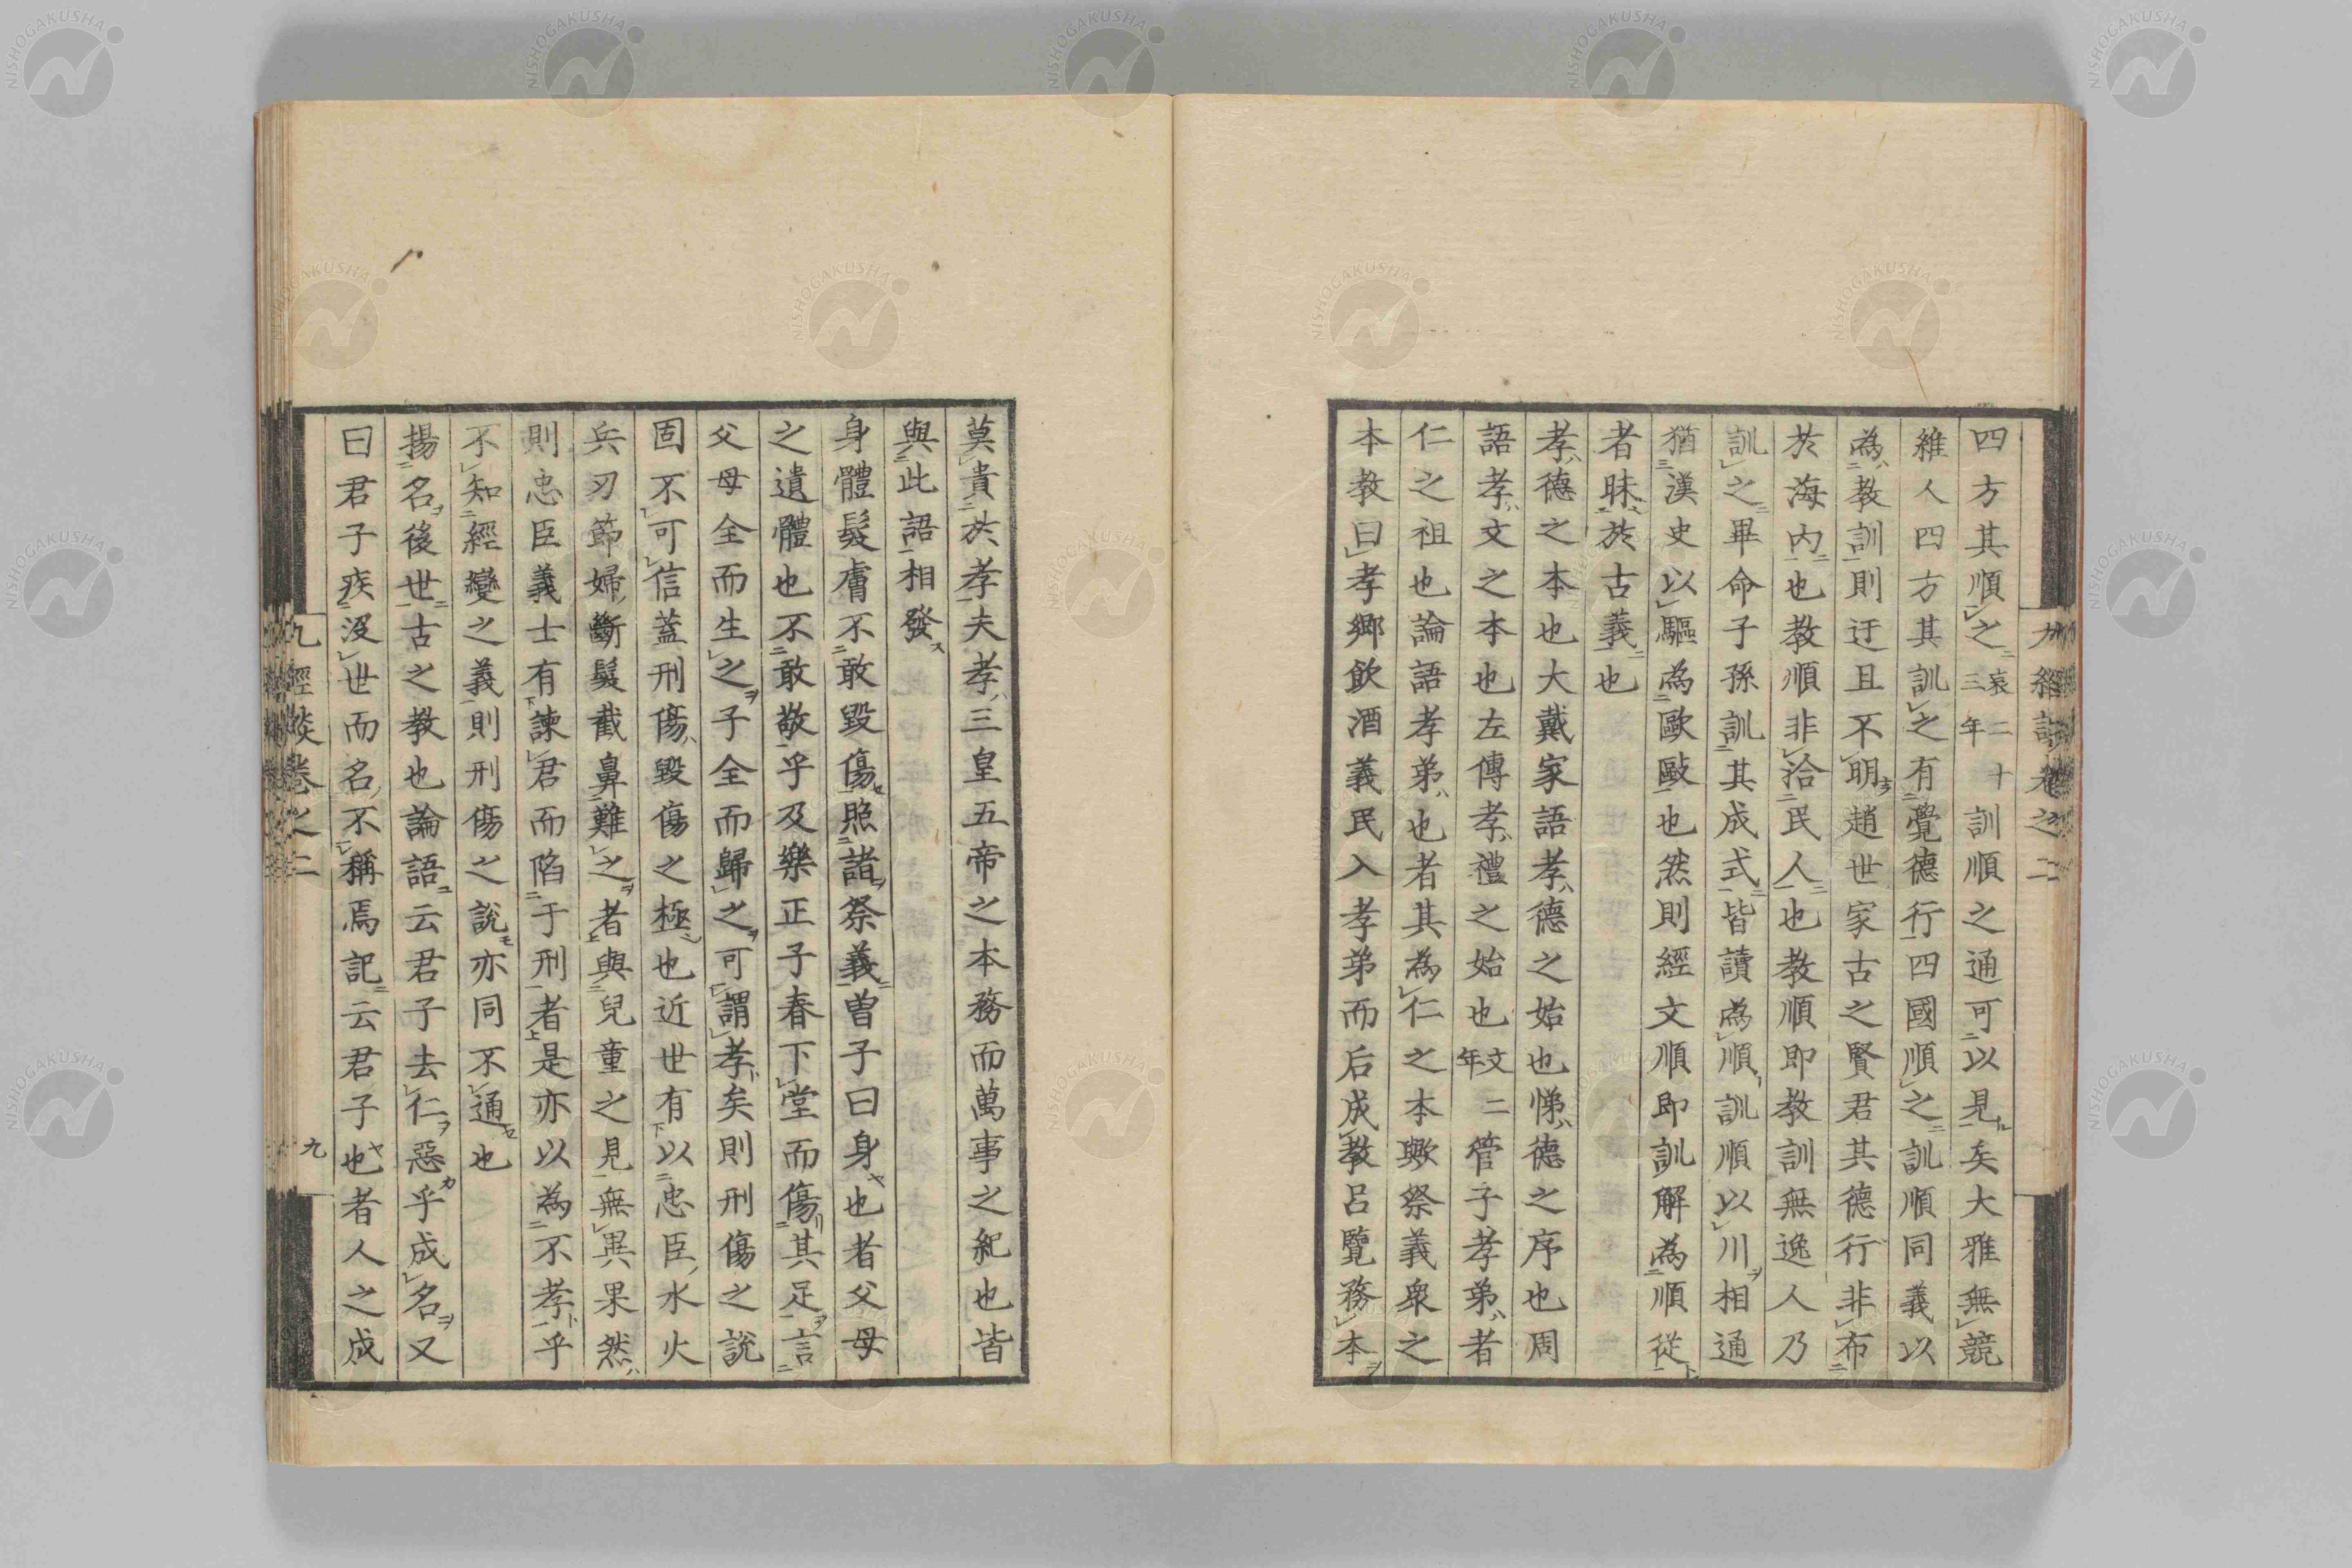 四方其順之哀二十三年訓順之通可以見矣大雅無競
維人四方其訓之有覺德行四國順之訓順同義以
為教訓則迂且不明趙世家古之賢君其德行非布
於海內也教順非洽民人也教順即教訓無逸人乃
訓之畢命子孫訓其成式皆讀為順訓順以川相通
猶漢史以驅為歐毆也然則經文順即訓解為順從
者昧於古義也
孝德之本也大戴家語孝德之始也悌德之序也周
語孝文之本也左傳孝禮之始也文二年管子孝弟者
仁之祖也論語孝弟也者其為仁之本歟祭義衆之
本教曰孝鄉飲酒義民入孝弟而后成教呂覽務本
莫貴於孝夫孝三皇五帝之本務而萬事之紀也皆
與此語相發
身體髮膚不敢毀傷照諸祭義曾子曰身也者父母
之遺體也不敢敬乎及樂正子春下堂而傷其足言
父母全而生之子全而歸之可謂孝矣則刑傷之說
固不可信蓋刑傷毀傷之極也近世有以忠臣水火
兵刃節婦斷髮截鼻難之者與兒童之見無異果然
則忠臣義士有諫君而陷于刑者是亦以為不孝乎
不知經變之義則刑傷之說亦同不通也
揚名後世古之教也論語云君子去仁惡乎成名又
曰君子疾沒世而名不稱焉記云君子也者人之成
九經談卷之二
九